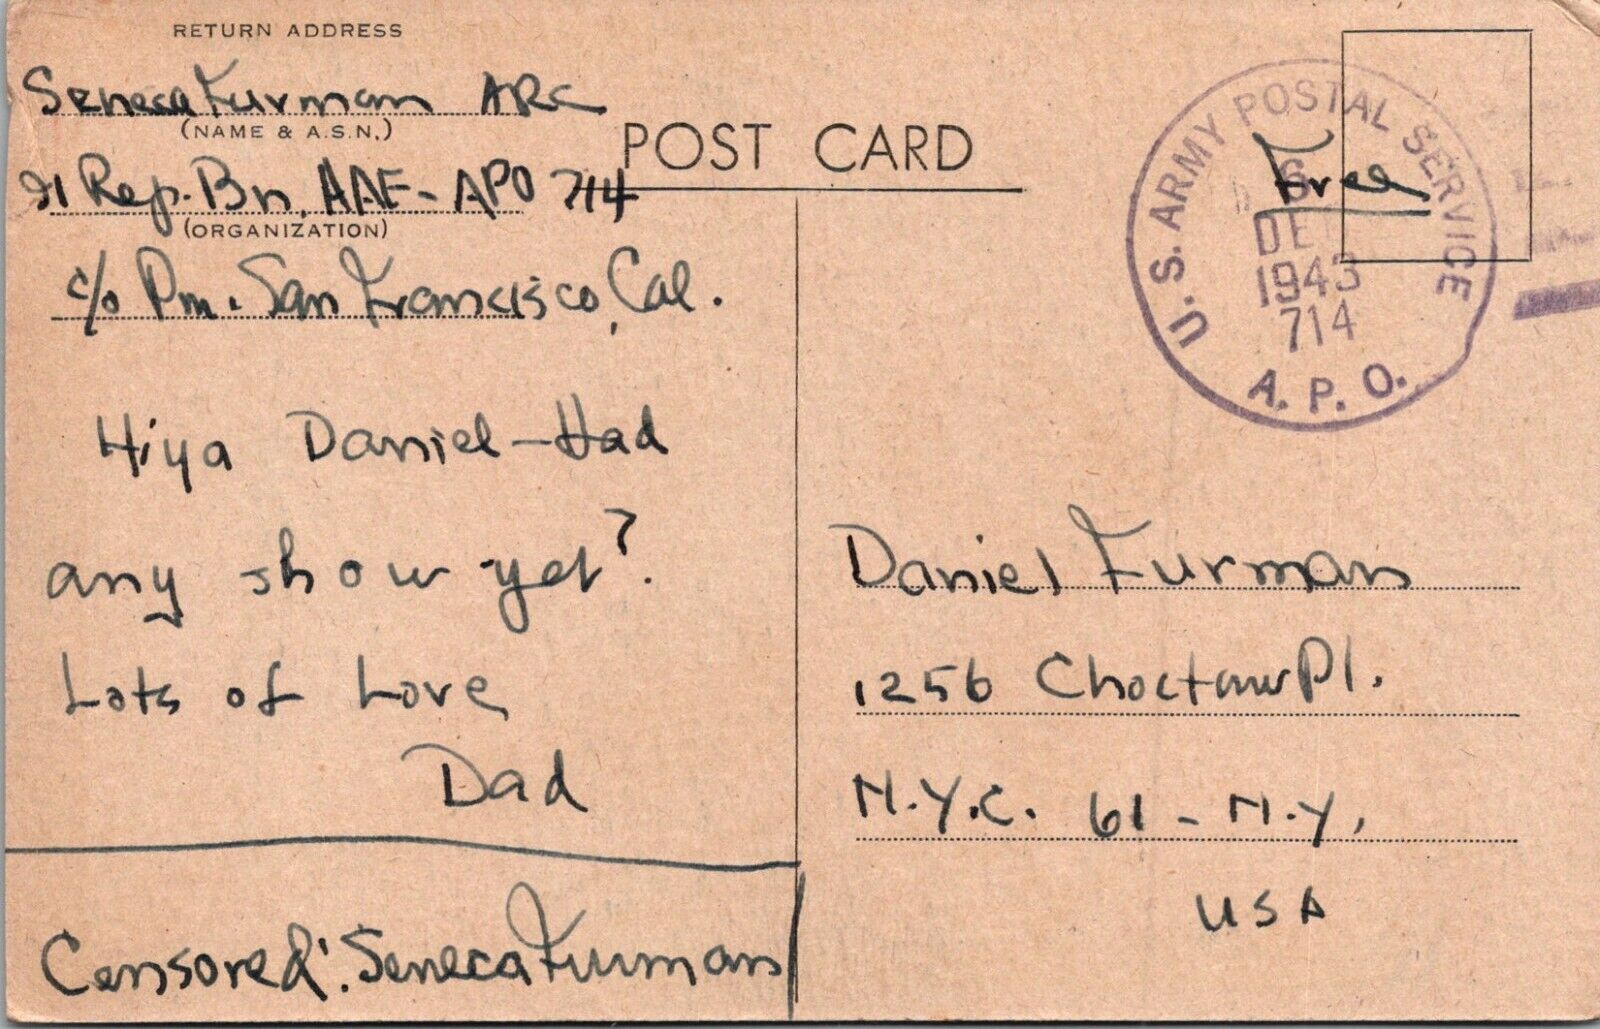 RETURN ADDRESS
Seneca Furman ARC
(NAME & A.S.N.)
91 Rep. Bn. AAF - APO 714
(ORGANIZATION)
c/o Pm. San Francisco, Cal.
POST CARD
U.S. ARMY POSTAL SERVICE
6
DEC
1943
714
A.P.O.
Free
Hiya Daniel - Had
any show yet?
Lots of Love
Dad
Censored: Seneca Furman
Daniel Furman
1256 Choctaw Pl.
N.Y.C. 61 - N.Y.
USA